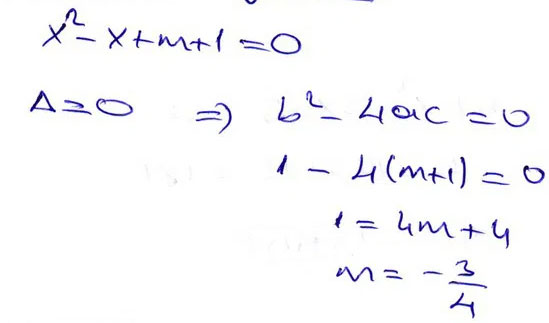 x² - x + m + 1 = 0
Δ = 0 ⇒ b² - 4ac = 0
1 - 4(m+1) = 0
1 = 4m + 4
m = - 3/4